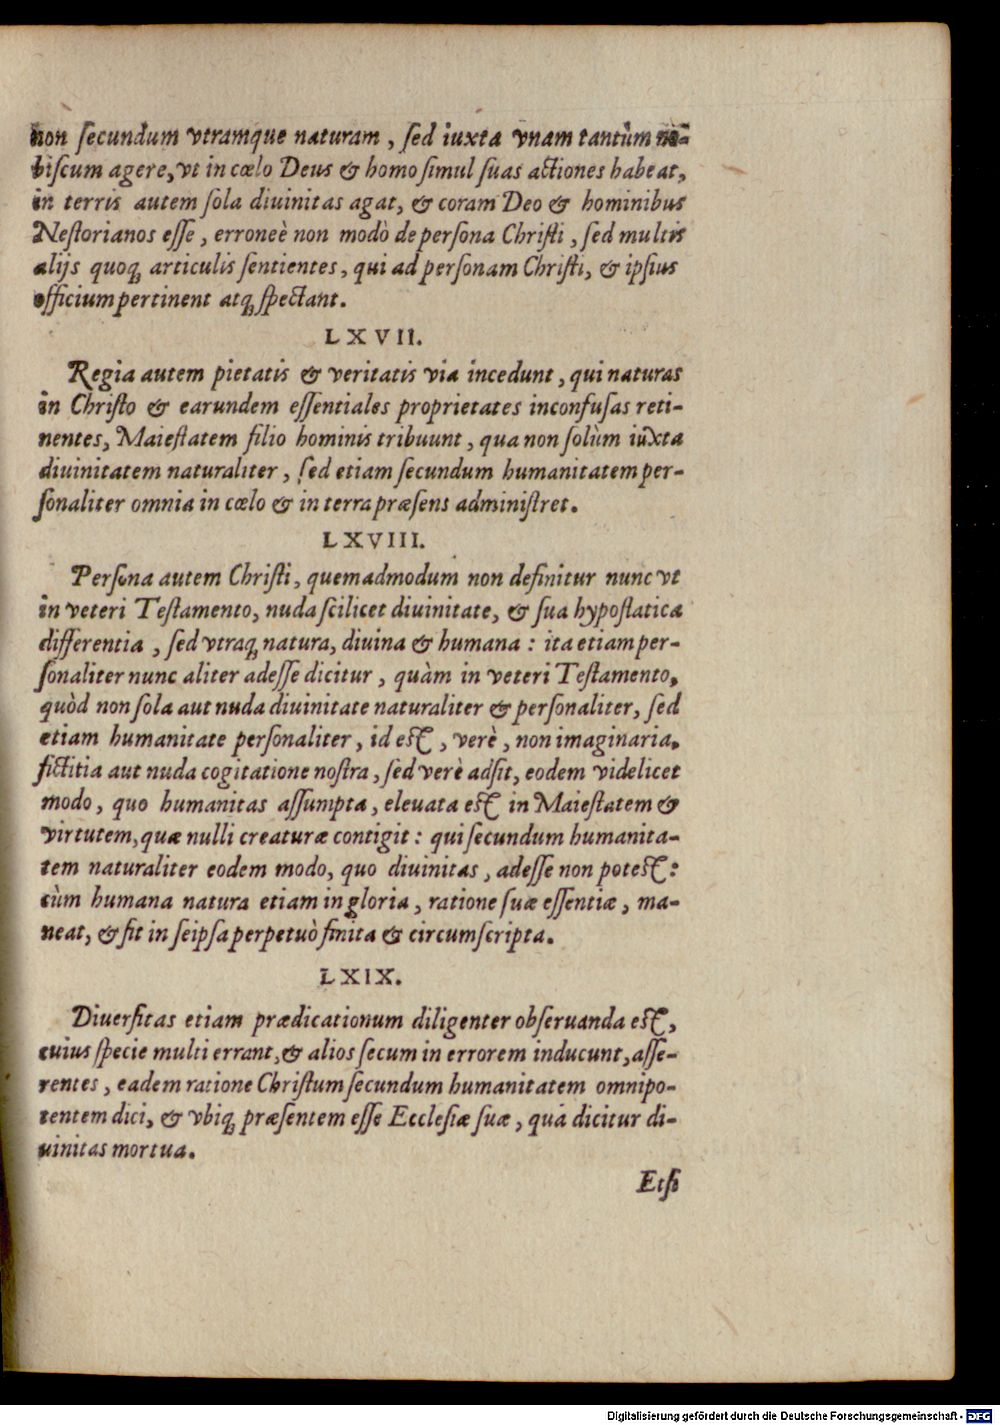 non ſecundum vtramque naturam, ſed iuxta vnam tantùm no-
biſcum agere, vt in cœlo Deus & homo ſimul ſuas actiones habeat,
in terris autem ſola diuinitas agat, & coram Deo & hominibus
Neſtorianos eſſe, erroneè non modò de perſona Chriſti, ſed multis
alijs quoq; articulis ſentientes, qui ad perſonam Chriſti, & ipſius
officium pertinent atq; ſpectant.
LXVII.
Regia autem pietatis & veritatis via incedunt, qui naturas
in Chriſto & earundem eſſentiales proprietates inconfuſas reti-
nentes, Maieſtatem filio hominis tribuunt, qua non ſolùm iuxta
diuinitatem naturaliter, ſed etiam ſecundum humanitatem per-
ſonaliter omnia in cœlo & in terra præſens adminiſtret.
LXVIII.
Perſona autem Chriſti, quemadmodum non definitur nunc vt
in veteri Teſtamento, nuda ſcilicet diuinitate, & ſua hypoſtatica
differentia, ſed vtraq; natura, diuina & humana: ita etiam per-
ſonaliter nunc aliter adeſſe dicitur, quàm in veteri Teſtamento,
quòd non ſola aut nuda diuinitate naturaliter & perſonaliter, ſed
etiam humanitate perſonaliter, id eſt, verè, non imaginaria,
fictitia aut nuda cogitatione noſtra, ſed verè adſit, eodem videlicet
modo, quo humanitas aſſumpta, eleuata eſt in Maieſtatem &
virtutem, quæ nulli creaturæ contigit: qui ſecundum humanita-
tem naturaliter eodem modo, quo diuinitas, adeſſe non poteſt:
cùm humana natura etiam in gloria, ratione ſuæ eſſentiæ, ma-
neat, & ſit in ſeipſa perpetuò finita & circumſcripta.
LXIX.
Diuerſitas etiam prædicationum diligenter obſeruanda eſt,
cuius ſpecie multi errant, & alios ſecum in errorem inducunt, aſſe-
rentes, eadem ratione Chriſtum ſecundum humanitatem omnipo-
tentem dici, & vbiq; præſentem eſſe Eccleſiæ ſuæ, qua dicitur di-
uinitas mortua.
Etſi
Digitalisierung gefördert durch die Deutsche Forschungsgemeinschaft - DFG